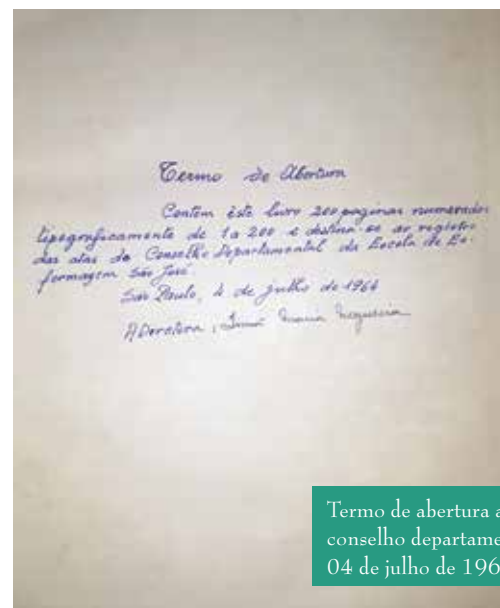 Termo de Abertura
Contém êste livro 200 paginas numeradas
tipograficamente de 1 a 200 e destina-se ao registro
das atas do Conselho Departamental da Escola de En-
fermagem São José.
São Paulo, 4 de julho de 1964
A Diretora, Irmã Maria Nogueira
Termo de abertura a
conselho departame
04 de julho de 196